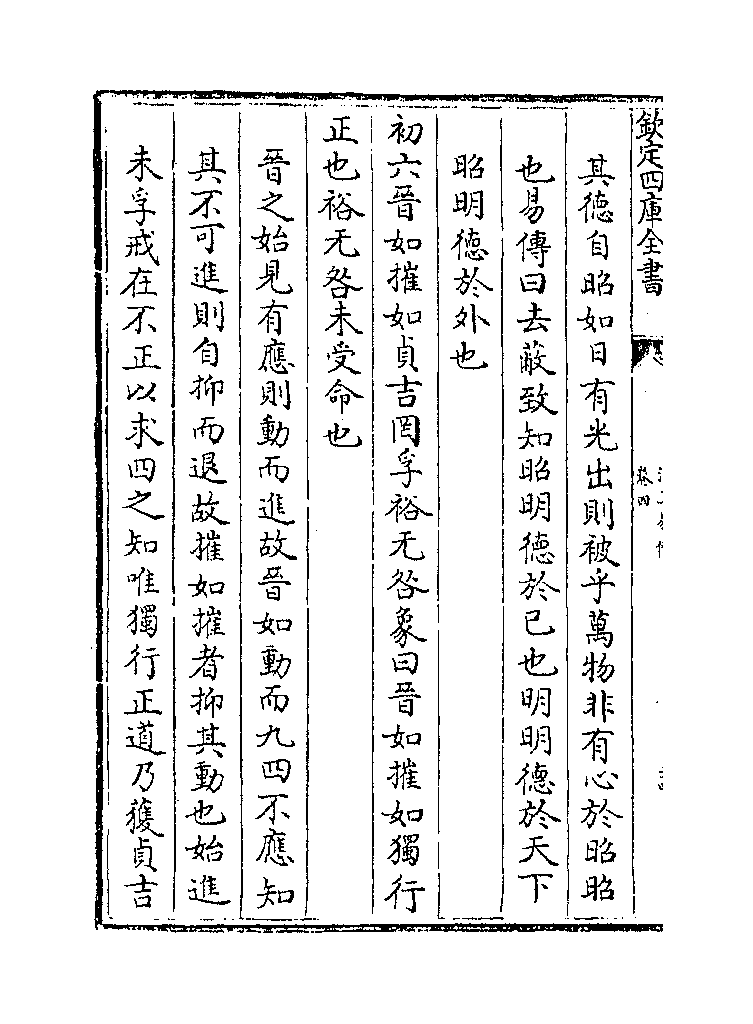 欽定四庫全書
卷四
其德自昭如日有光出則被乎萬物非有心於昭昭
也易傳曰去蔽致知昭明德於已也明明德於天下
昭明德於外也
初六晉如摧如貞吉罔孚裕无咎象曰晉如摧如獨行
正也裕无咎未受命也
晉之始見有應則動而進故晉如動而九四不應知
其不可進則自抑而退故摧如摧者抑其動也始進
未孚戒在不正以求四之知唯獨行正道乃獲貞吉